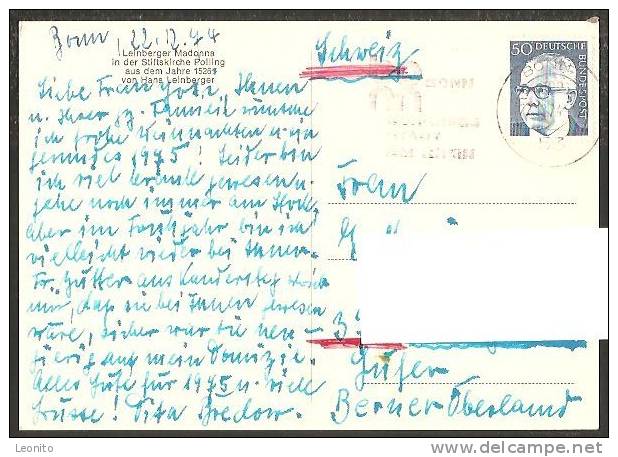 Bonn, 22.12.74
Leinberger Madonna
in der Stiftskirche Polling
aus dem Jahre 1526
von Hans Leinberger
Schweiz
50 DEUTSCHE
BUNDESPOST
Liebe Frau Ihnen
u. Ihrer Familie wünsche
ich frohe Weihnachten u. ein
gesundes 1975! Leider bin
ich viel krank gewesen u.
gehe noch immer am Stock.
Aber im Frühjahr bin ich
vielleicht wieder bei Ihnen.
Fr. Hutter aus Kandersteg
mir, dass sie bei Ihnen gewesen
wäre, sicher war sie neu-
gierig auf mein Domizil.
Alles Gute für 1975 u. viele
Grüsse! Bredow.
Frau
Berner Oberland
Leonito
www.delcampe.net